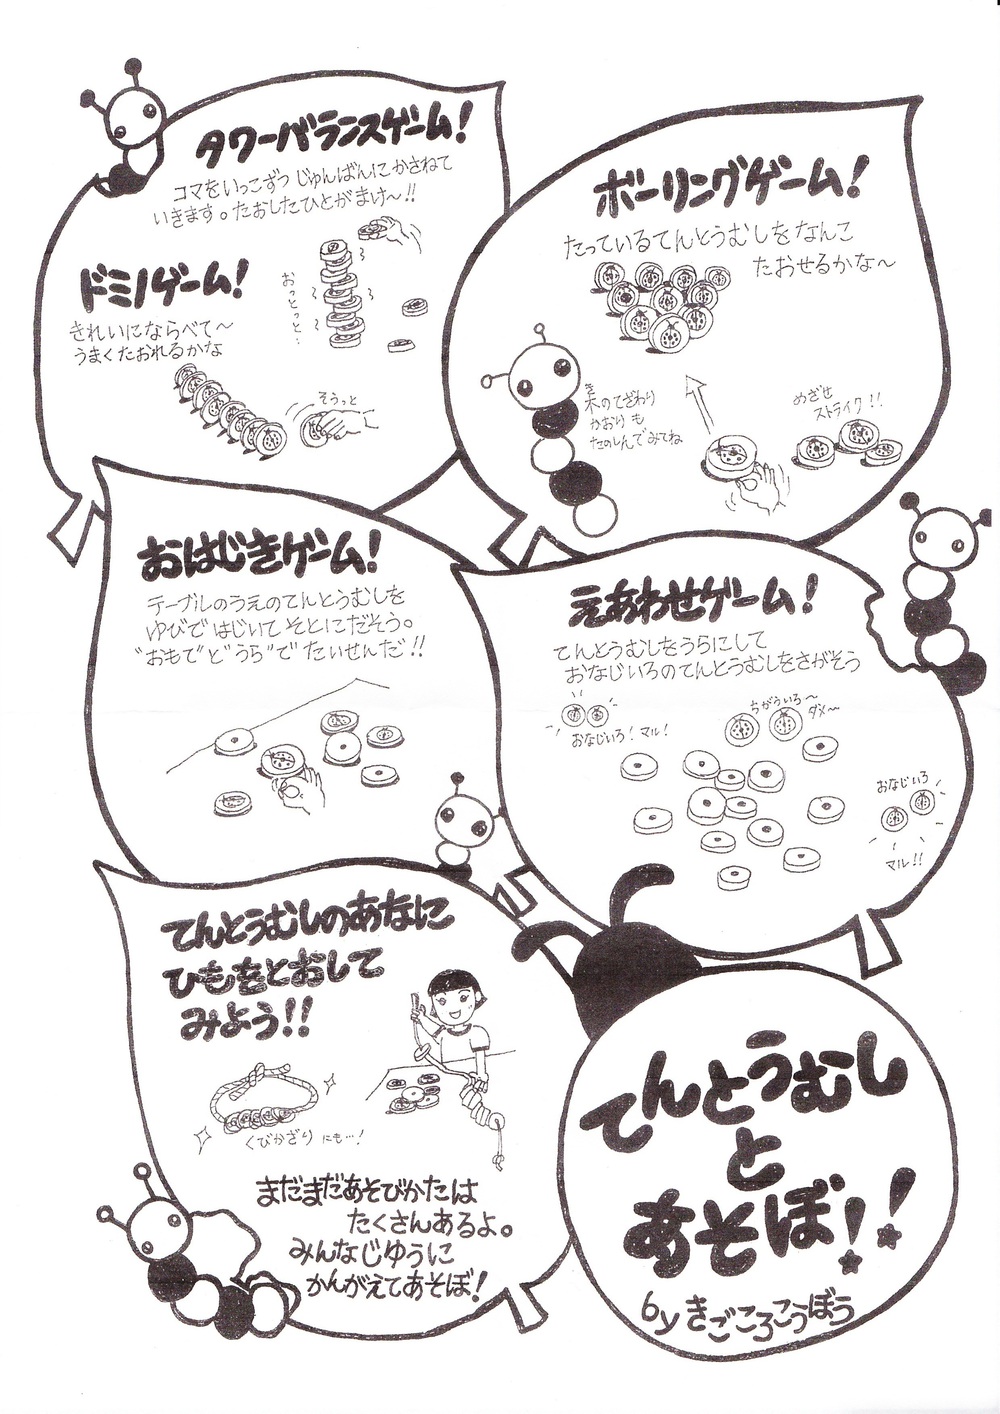 タワーバランスゲーム!
コマをいっこずつ じゅんばんに かさねて
いきます。たおしたひとがまけ〜!!
おっとっと…
ドミノゲーム!
きれいにならべて〜
うまくたおれるかな
そうっと
ボーリングゲーム!
たっているてんとうむしをなんこ
たおせるかな〜
木のてざわり
き
かおりも
たのしんでみてね
めざせ
ストライク!!
おはじきゲーム!
テーブルのうえのてんとうむしを
ゆびではじいて そとにだそう。
"おもて"と"うら"で たいせんだ!!
えあわせゲーム!
てんとうむしをうらにして
おなじいろのてんとうむしをさがそう
おなじいろ! マル!
ちがういろ〜
ダメ〜
おなじいろ
マル!!
てんとうむしのあなに
ひもをとおして
みよう!!
くびかざり にも…!
まだまだあそびかたは
たくさんあるよ。
みんなじゆうに
かんがえてあそぼ!
てんとうむし
と
あそぼ!!
by きごころこうぼう